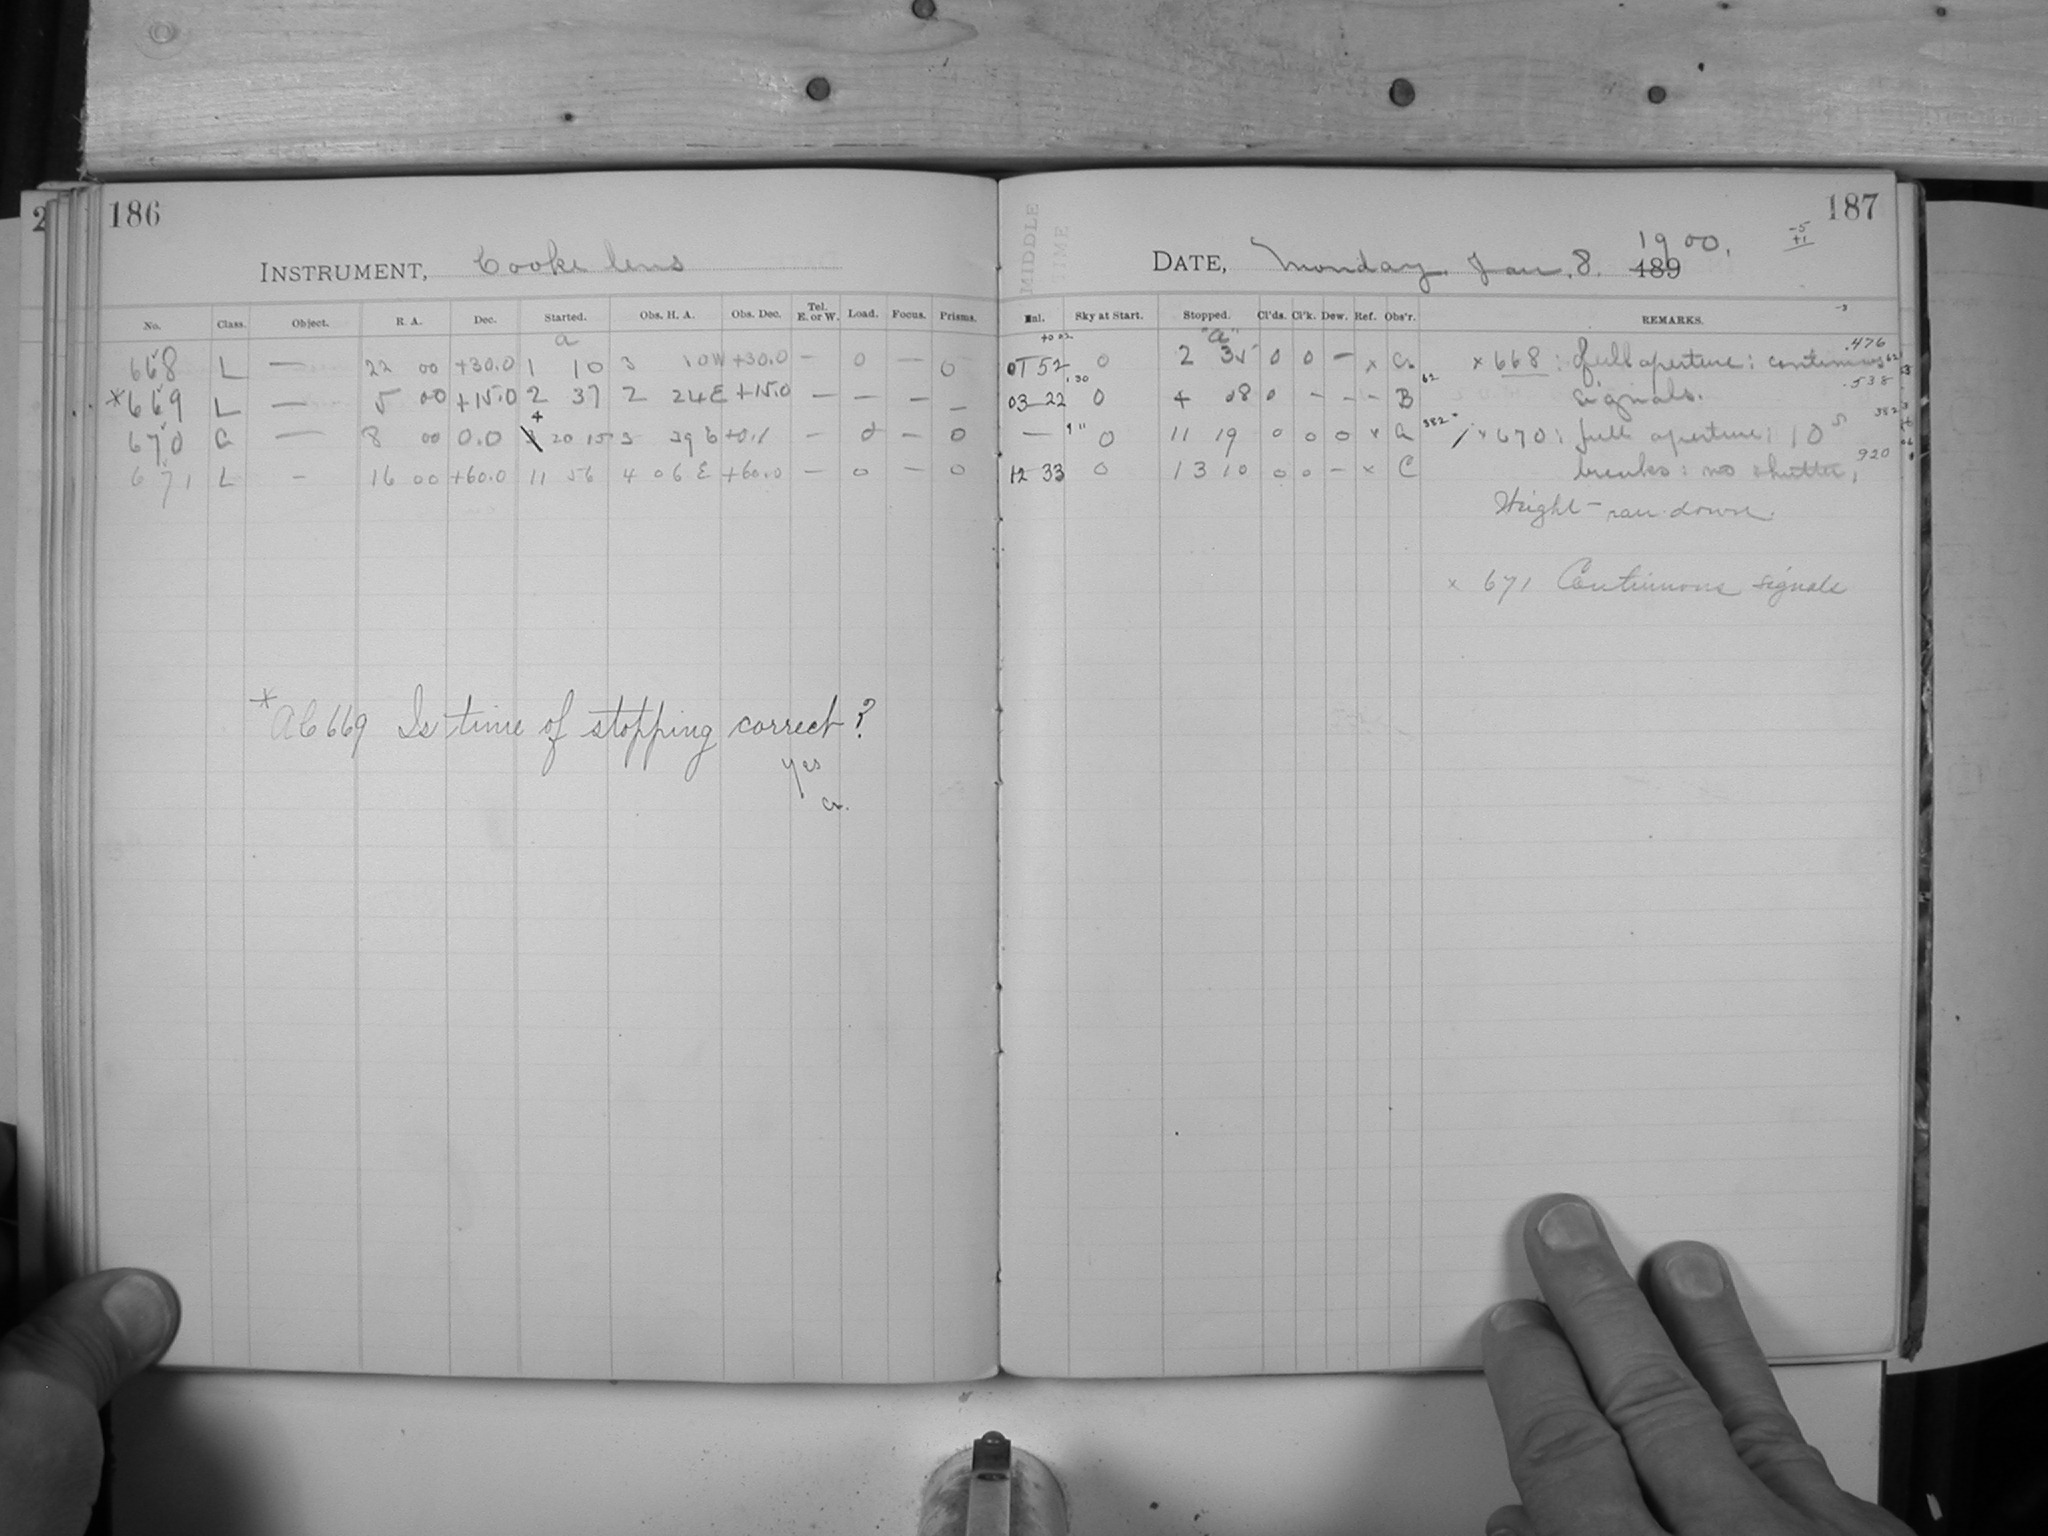 2
186
INSTRUMENT, Cooke lens
No. Class. Object. R. A. Dec. Started. Obs. H. A. Obs. Dec. Tel. E. or W. Load. Focus. Prisms.
a
668 L — 22 00 +30.0 1 10 3 10W +30.0 — 0 — 0
*669 L — 5 00 +15.0 2 37 2 24E +15.0 — — — —
4
670 G — 8 00 0.0 3 20 15 3 39 +0.1 — 0 — 0
671 L — 16 00 +60.0 11 56 4 06E +60.0 — 0 — 0
*AC669 Is time of stopping correct?
yes
a.
187
MIDDLE
TIME
DATE, Monday. Jan. 8. 1900.
189
-5
+1
Sky at Start. Stopped. Cl'ds. Cl'k. Dew. Ref. Obs'r. REMARKS.
-3
"a"
52 0 2 35 0 0 — x × 668: full aperture: continuous .476
03 22 0 4 08 0 - - - B 62 signals. .538
— 0 11 19 0 0 0 x a 382 × 670: full aperture: 10s 382
12 33 0 13 10 0 0 — x C breaks: no shutter, 920
Weight - ran down.
× 671 Continuous signals